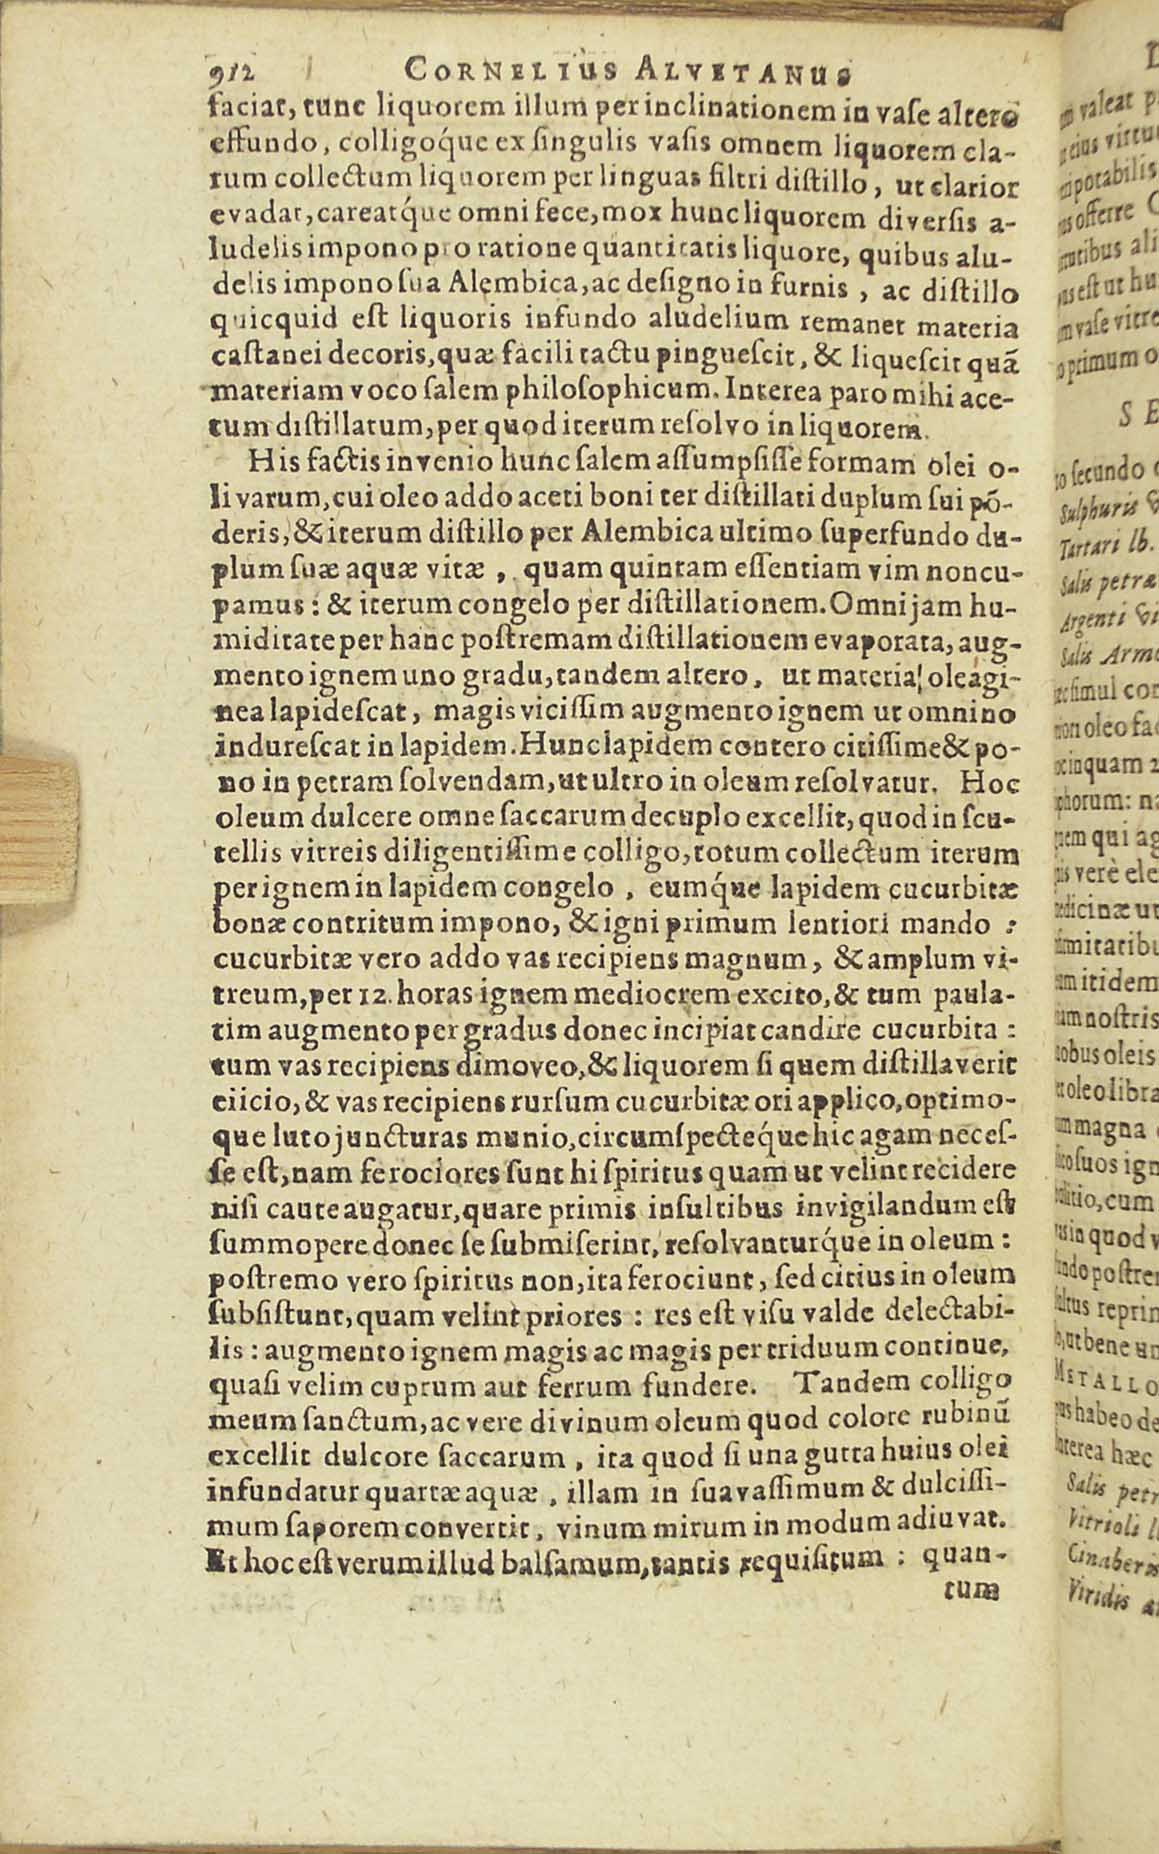 912 CORNELIUS ALVETANUS
faciat, tunc liquorem illum per inclinationem in vase altero
effundo, colligoq́ue ex singulis vasis omnem liquorem cla-
rum collectum liquorem per linguas filtri distillo, ut clarior
evadat, careatq́ue omni fece, mox hunc liquorem diversis a-
ludelis impono pro ratione quantitatis liquore, quibus alu-
delis impono sua Alembica, ac designo in furnis, ac distillo
quicquid est liquoris infundo aludelium remanet materia
castanei decoris, quæ facili tactu pinguescit, & liquescit quā
materiam voco salem philosophicum. Interea paro mihi ace-
tum distillatum, per quod iterum resolvo in liquorem.
His factis invenio hunc salem assumpsisse formam olei o-
livarum, cui oleo addo aceti boni ter distillati duplum sui pō-
deris, & iterum distillo per Alembica ultimo superfundo du-
plum suæ aquæ vitæ, quam quintam essentiam vim noncu-
pamus: & iterum congelo per distillationem. Omni jam hu-
miditate per hanc postremam distillationem evaporata, aug-
mento ignem uno gradu, tandem altero, ut materia oleagi-
nea lapidescat, magis vicissim augmento ignem ut omnino
indurescat in lapidem. Hunc lapidem contero citissime & po-
no in petram solvendam, ut ultro in oleum resolvatur. Hoc
oleum dulcere omne saccarum decuplo excellit, quod in scu-
tellis vitreis diligentissime colligo, totum collectum iterum
per ignem in lapidem congelo, eumq́ue lapidem cucurbitæ
bonæ contritum impono, & igni primum lentiori mando:
cucurbitæ vero addo vas recipiens magnum, & amplum vi-
treum, per 12. horas ignem mediocrem excito, & tum paula-
tim augmento per gradus donec incipiat candire cucurbita:
tum vas recipiens dimoveo, & liquorem si quem distillaverit
eiicio, & vas recipiens rursum cucurbitæ ori applico, optimo-
que luto juncturas munio, circumspecteq́ue hic agam neces-
se est, nam ferociores sunt hi spiritus quam ut velint recidere
nisi caute augatur, quare primis insultibus invigilandum est
summopere donec se submiserint, resolvanturq́ue in oleum:
postremo vero spiritus non, ita ferociunt, sed citius in oleum
subsistunt, quam velint priores: res est visu valde delectabi-
lis: augmento ignem magis ac magis per triduum continue,
quasi velim cuprum aut ferrum fundere. Tandem colligo
meum sanctum, ac vere divinum oleum quod colore rubinū
excellit dulcore saccarum, ita quod si una gutta huius olei
infundatur quartæ aquæ, illam in suavassimum & dulcissi-
mum saporem convertit, vinum mirum in modum adiuvat.
Et hoc est verum illud balsamum, tantis requisitum: quan-
tum
valeat
eius
potabilis
offerre
ali
est ut
vase
primum
SE
secundo
Sulphuris
Tartari lb.
Salis petræ
Argenti
Salis
simul
oleo
inquam
phorum:
qui
verè
ut
itidem
nostris
oleis
oleo
magna
suos
cum
in quod
ut bene
METALLO
habeo de
hæc
Salis petr
Vitrioli
Viridis